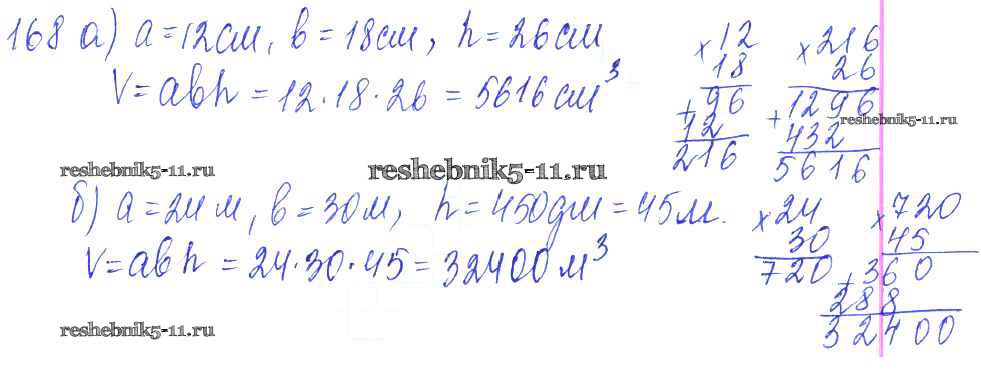 168 а) a = 12 см, b = 18 см, h = 26 см
V = abh = 12 · 18 · 26 = 5616 см³
× 12
18
+ 96
12
216
× 216
26
+ 1296
432
5616
reshebnik5-11.ru
reshebnik5-11.ru
reshebnik5-11.ru
б) a = 24 м, b = 30 м, h = 450 дм = 45 м.
V = abh = 24 · 30 · 45 = 32400 м³
× 24
30
720
× 720
45
+ 360
288
32400
reshebnik5-11.ru